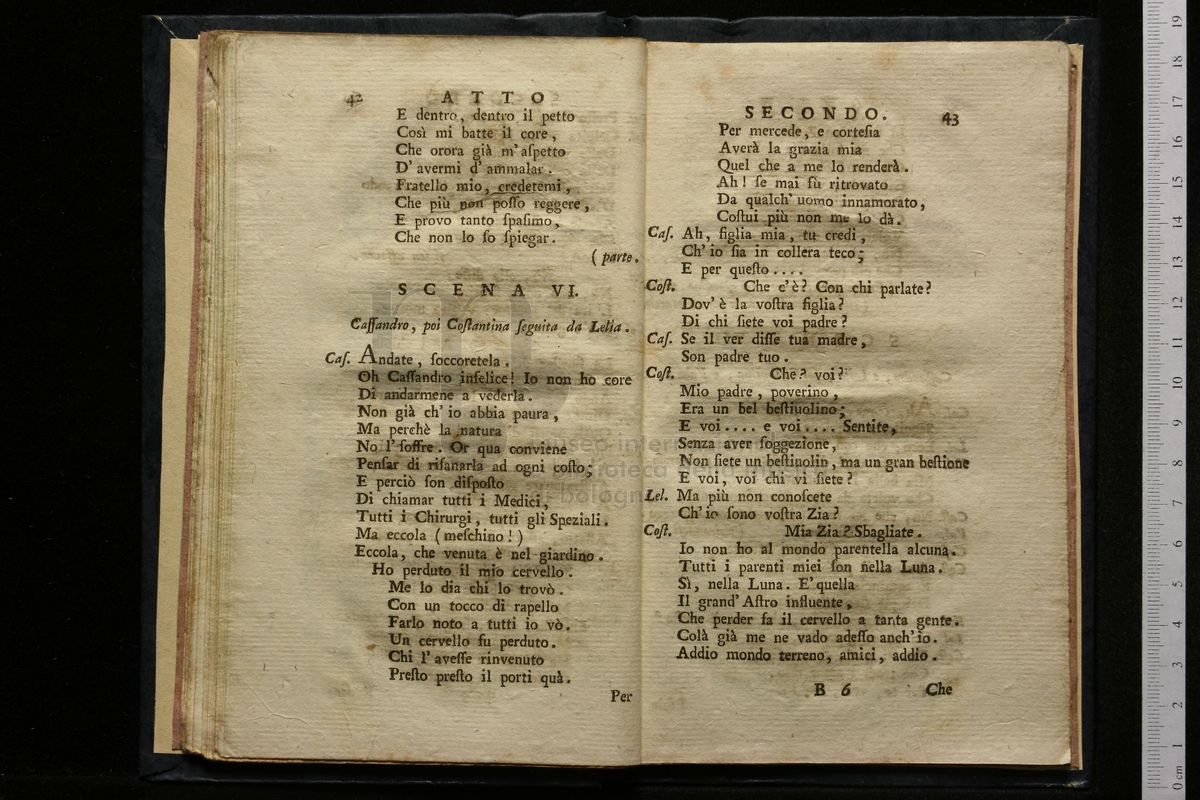 42 ATTO
E dentro, dentro il petto
Così mi batte il core,
Che orora già m'aſpetto
D'avermi d'ammalar.
Fratello mio, credetemi,
Che più non poſſo reggere,
E provo tanto ſpaſimo,
Che non lo ſo ſpiegar.
(parte.
SCENA VI.
Caſſandro, poi Coſtantina ſeguita da Lelia.
Caſ. Andate, ſoccoretela.
Oh Caſſandro infelice! Io non ho core
Di andarmene a vederla.
Non già ch'io abbia paura,
Ma perchè la natura
No l'ſoffre. Or qua conviene
Penſar di riſanarla ad ogni coſto;
E perciò ſon diſpoſto
Di chiamar tutti i Medici,
Tutti i Chirurgi, tutti gli Speziali.
Ma eccola (meſchino!)
Eccola, che venuta è nel giardino.
Ho perduto il mio cervello.
Me lo dia chi lo trovò.
Con un tocco di rapello
Farlo noto a tutti io vò.
Un cervello fu perduto.
Chi l'aveſſe rinvenuto
Preſto preſto il porti quà.
Per
SECONDO. 43
Per mercede, e corteſia
Averà la grazia mia
Quel che a me lo renderà.
Ah! ſe mai fù ritrovato
Da qualch'uomo innamorato,
Coſtui più non me lo dà.
Caſ. Ah, figlia mia, tu credi,
Ch'io ſia in collera teco;
E per queſto....
Coſt. Che c'è? Con chi parlate?
Dov'è la voſtra figlia?
Di chi ſiete voi padre?
Caſ. Se il ver diſſe tua madre,
Son padre tuo.
Coſt. Che? voi?
Mio padre, poverino,
Era un bel beſtiuolino;
E voi.... e voi.... Sentite,
Senza aver ſoggezione,
Non ſiete un beſtiuolin, ma un gran beſtione
E voi, voi chi vi ſiete?
Lel. Ma più non conoſcete
Ch'io ſono voſtra Zia?
Coſt. Mia Zia? Sbagliate.
Io non ho al mondo parentella alcuna.
Tutti i parenti miei ſon nella Luna.
Sì, nella Luna. E'quella
Il grand'Aſtro influente,
Che perder fa il cervello a tanta gente.
Colà già me ne vado adeſſo anch'io.
Addio mondo terreno, amici, addio.
B 6 Che